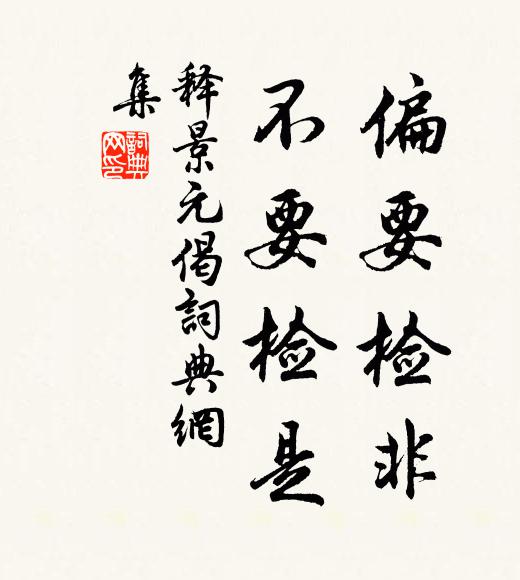 偏要检非
不要检是
释景元偈詞典網
集
詞典
网印